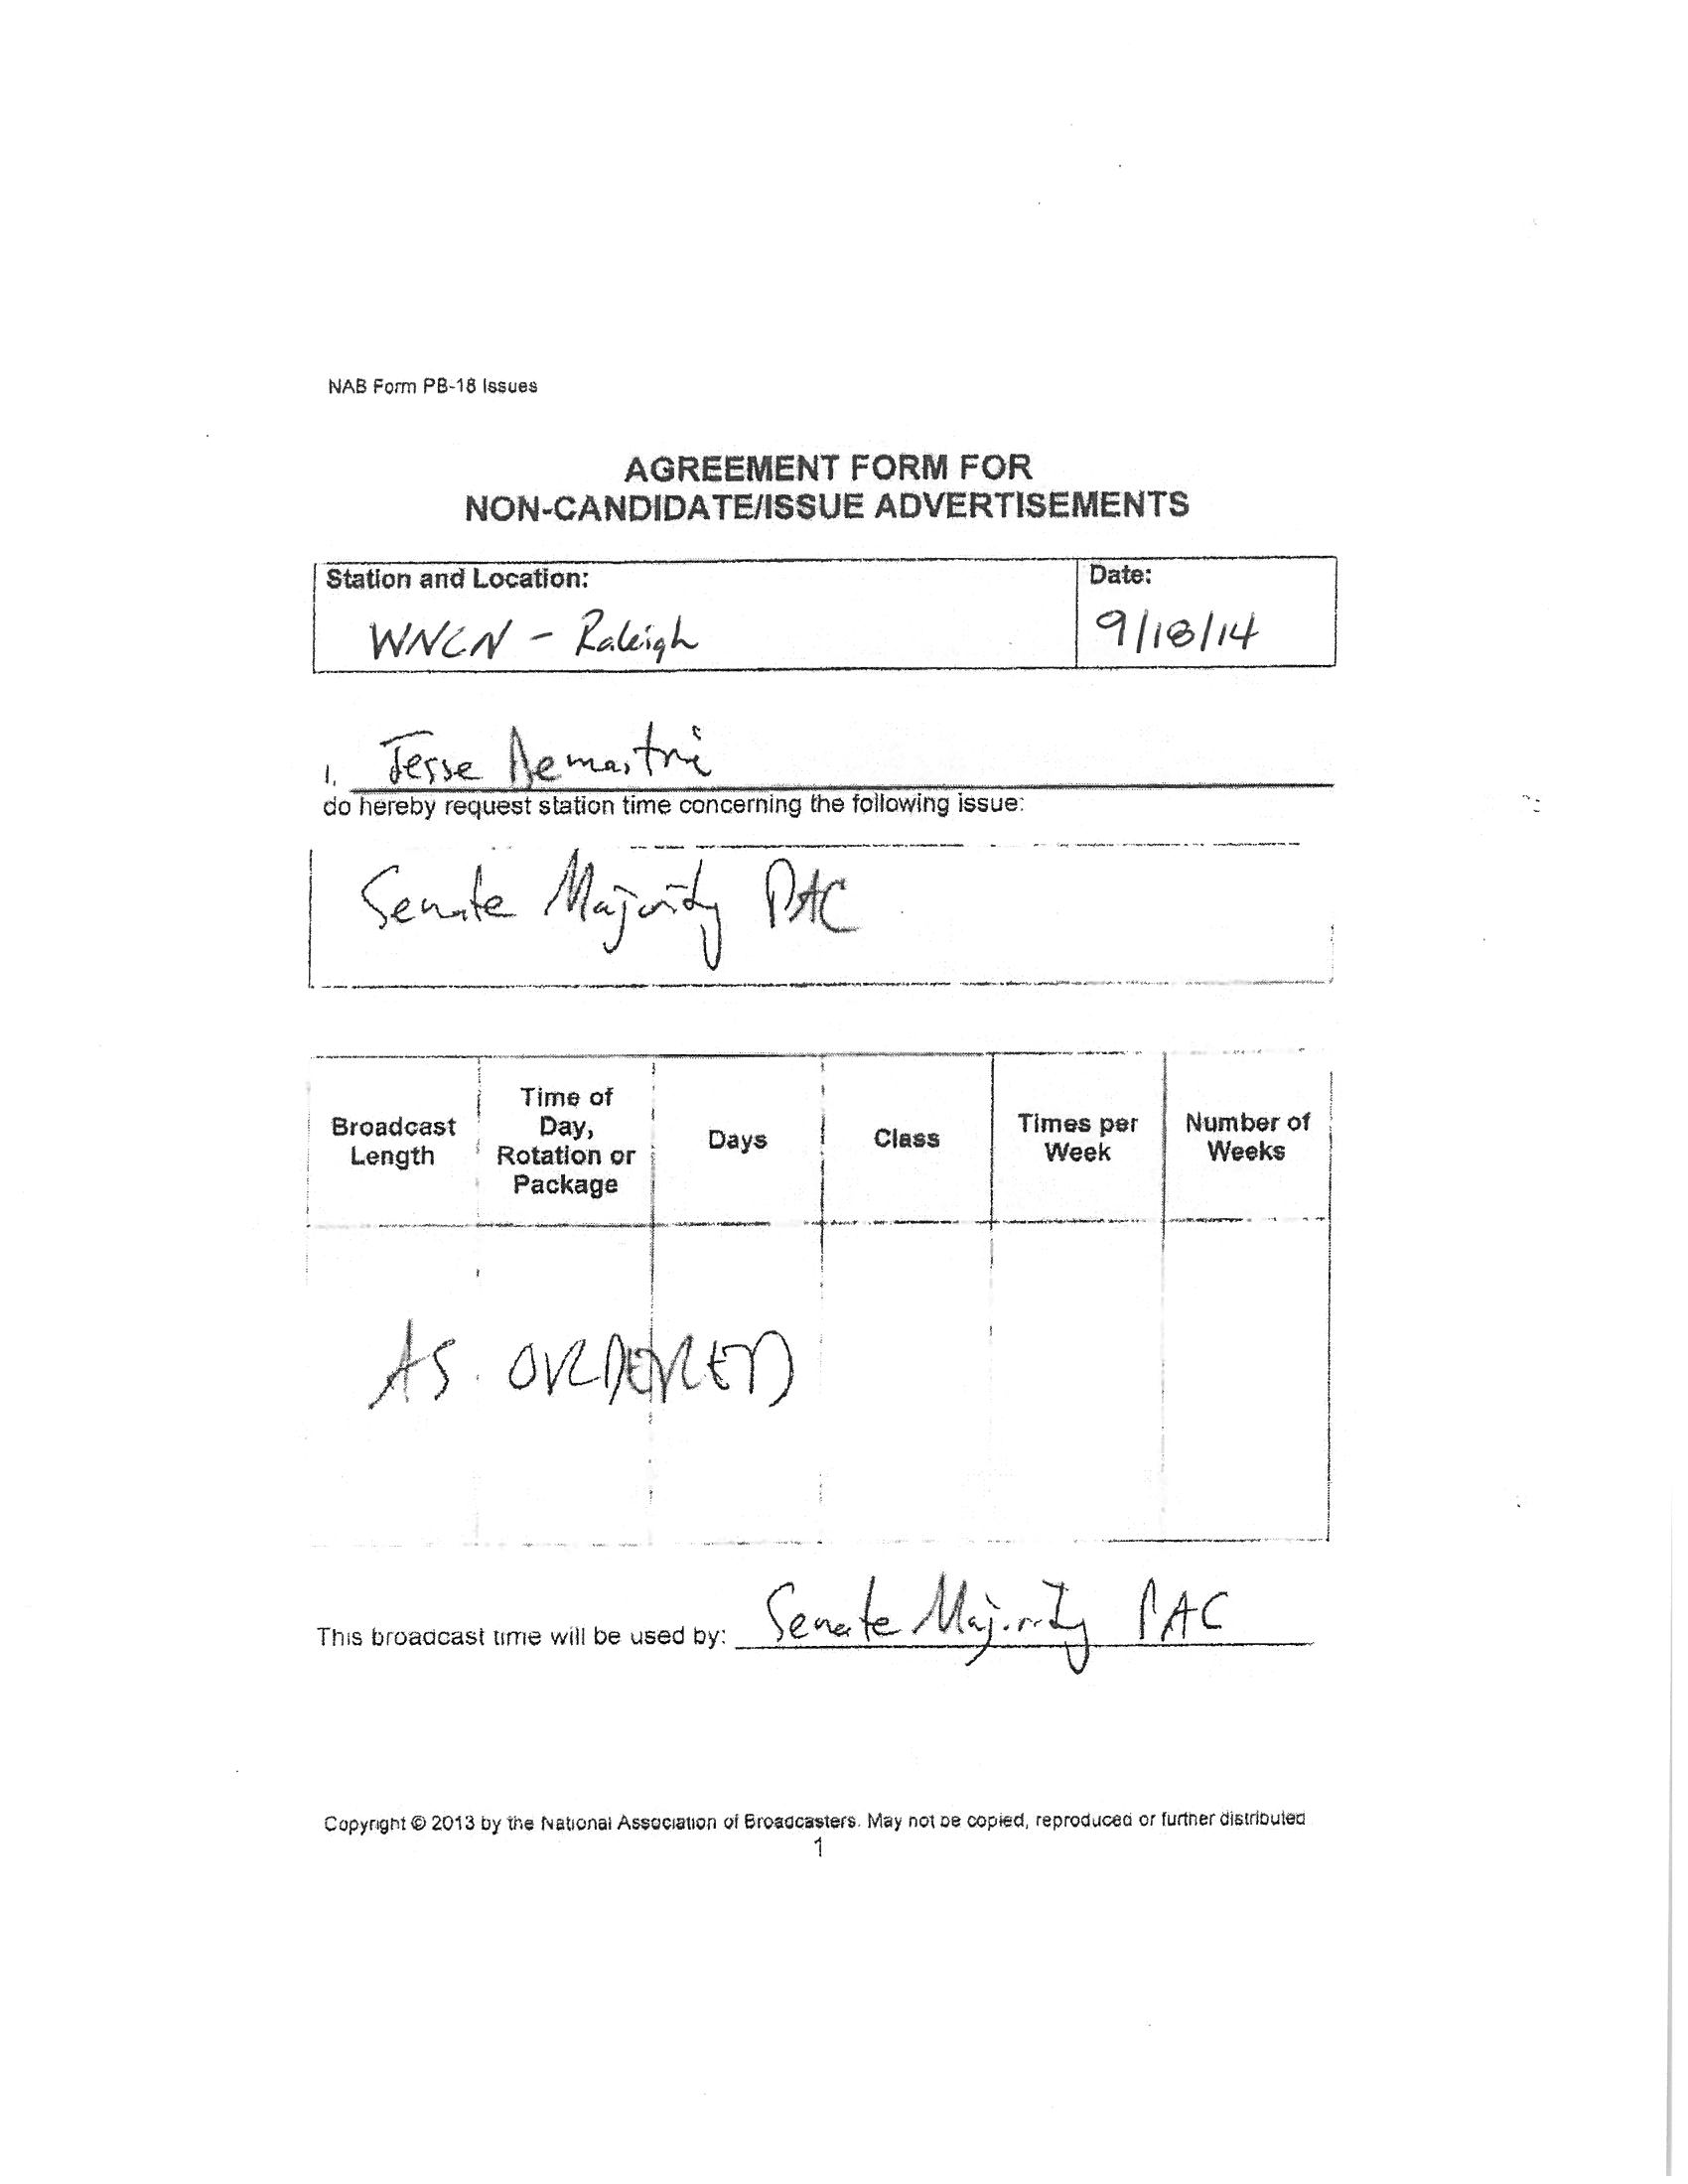 NAB Form PB-18 Issues
AGREEMENT FORM FOR
NON-CANDIDATE/ISSUE ADVERTISEMENTS
Station and Location:
WNCN - Raleigh
Date:
9/18/14
I, Jesse Demastrie
do hereby request station time concerning the following issue:
Senate Majority PAC
Broadcast
Length
Time of
Day,
Rotation or
Package
Days
Class
Times per
Week
Number of
Weeks
AS ORDERED
This broadcast time will be used by: Senate Majority PAC
Copyright © 2013 by the National Association of Broadcasters. May not be copied, reproduced or further distributed
1